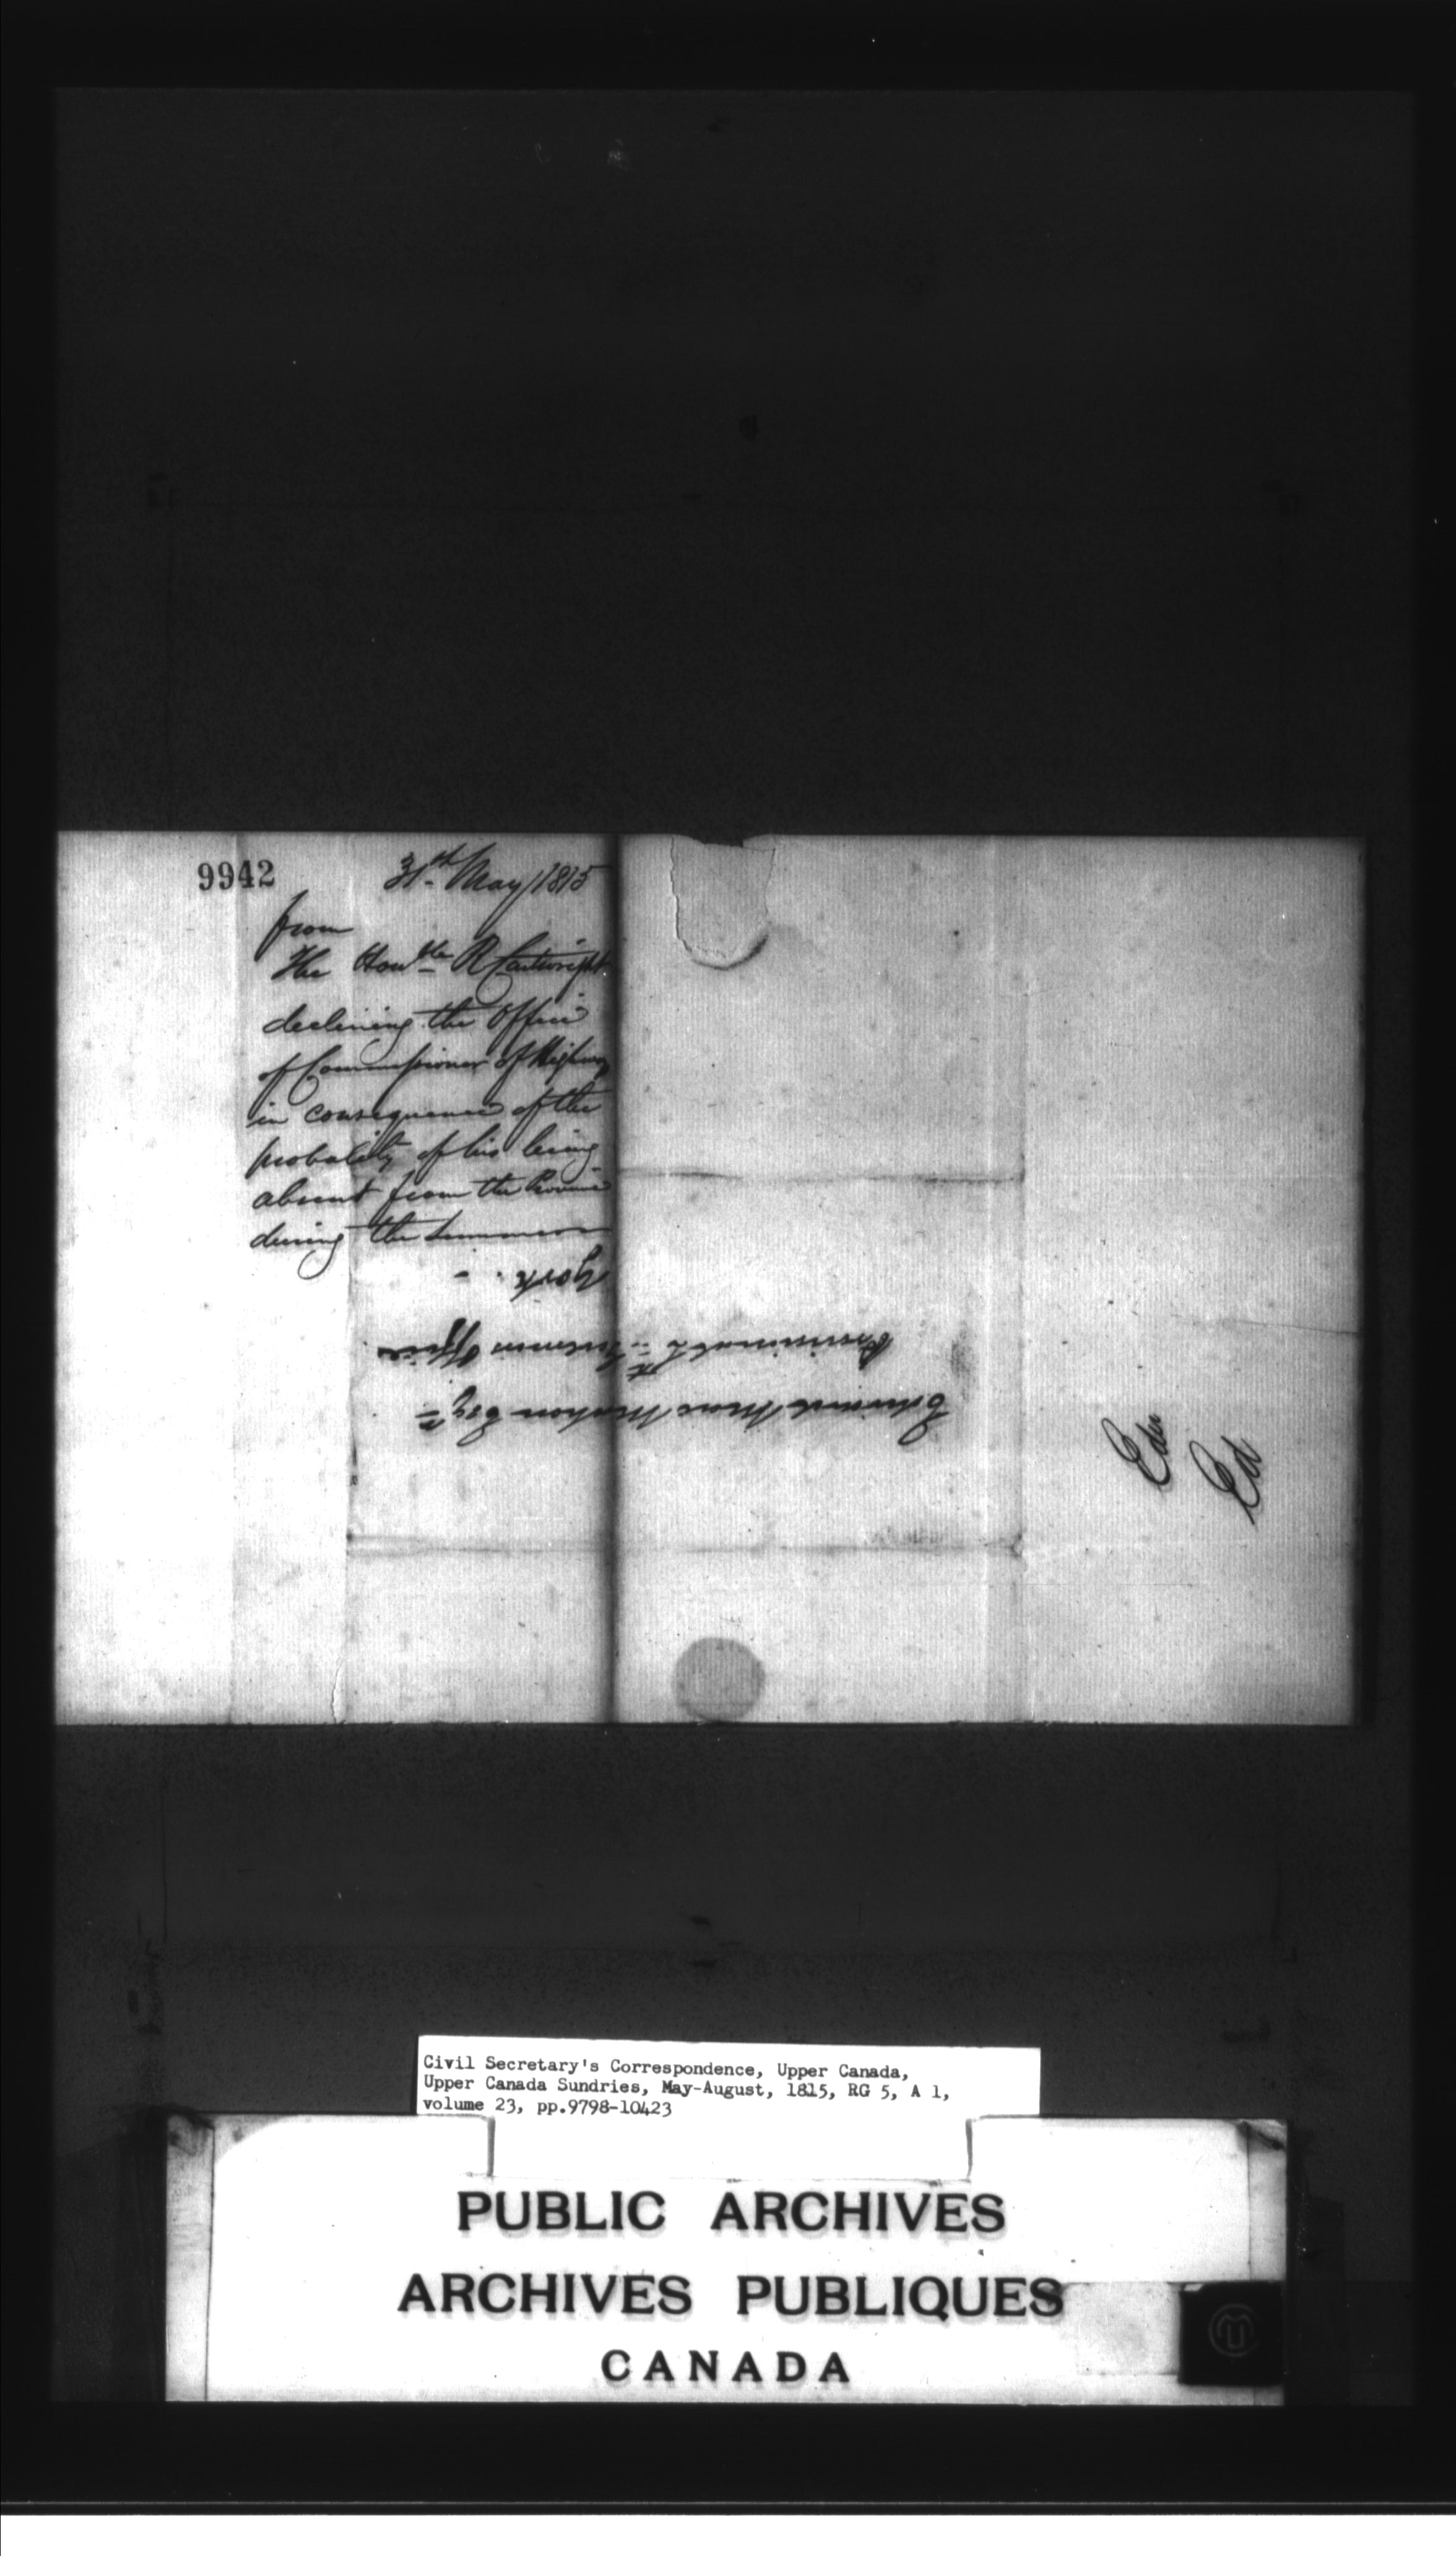 9942
31th May 1815
from
The Honble R Cartwright
declining the Office
of Commissioner of Highways
in consequence of the
probability of his being
absent from the Province
during the Summer
Edward MacMahon Esqr
Provincial Lt Governors Office
York. -
Edw
Ed
Civil Secretary's Correspondence, Upper Canada,
Upper Canada Sundries, May-August, 1815, RG 5, A 1,
volume 23, pp.9798-10423
PUBLIC ARCHIVES
ARCHIVES PUBLIQUES
CANADA